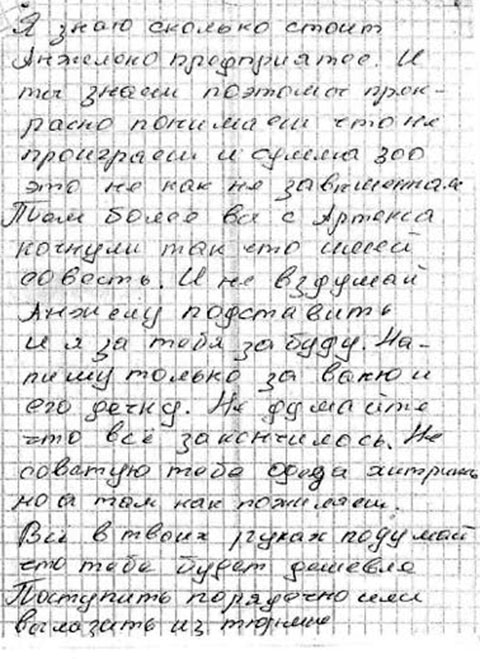 Я знаю сколько стоит
Анжелоко предприятое. И
ты знаеш поэтомы прек-
расно понимаеш что не
проиграеш и сумма 300
это не как не завышенная
Тем более вы с Артекса
качнули так что имей
совесть. И не вздумай
Анжелу подставить
и я за тебя забуду. На-
пишу только за ваню и
его дочку. Не думайте
что всё закончилось. Не
советую тебе хитрить
но а там как пожилаеш.
Всё в твоих руках подумай
что тебе будет дешевле
Поступить порядочно или
вылазить из тюрьмы